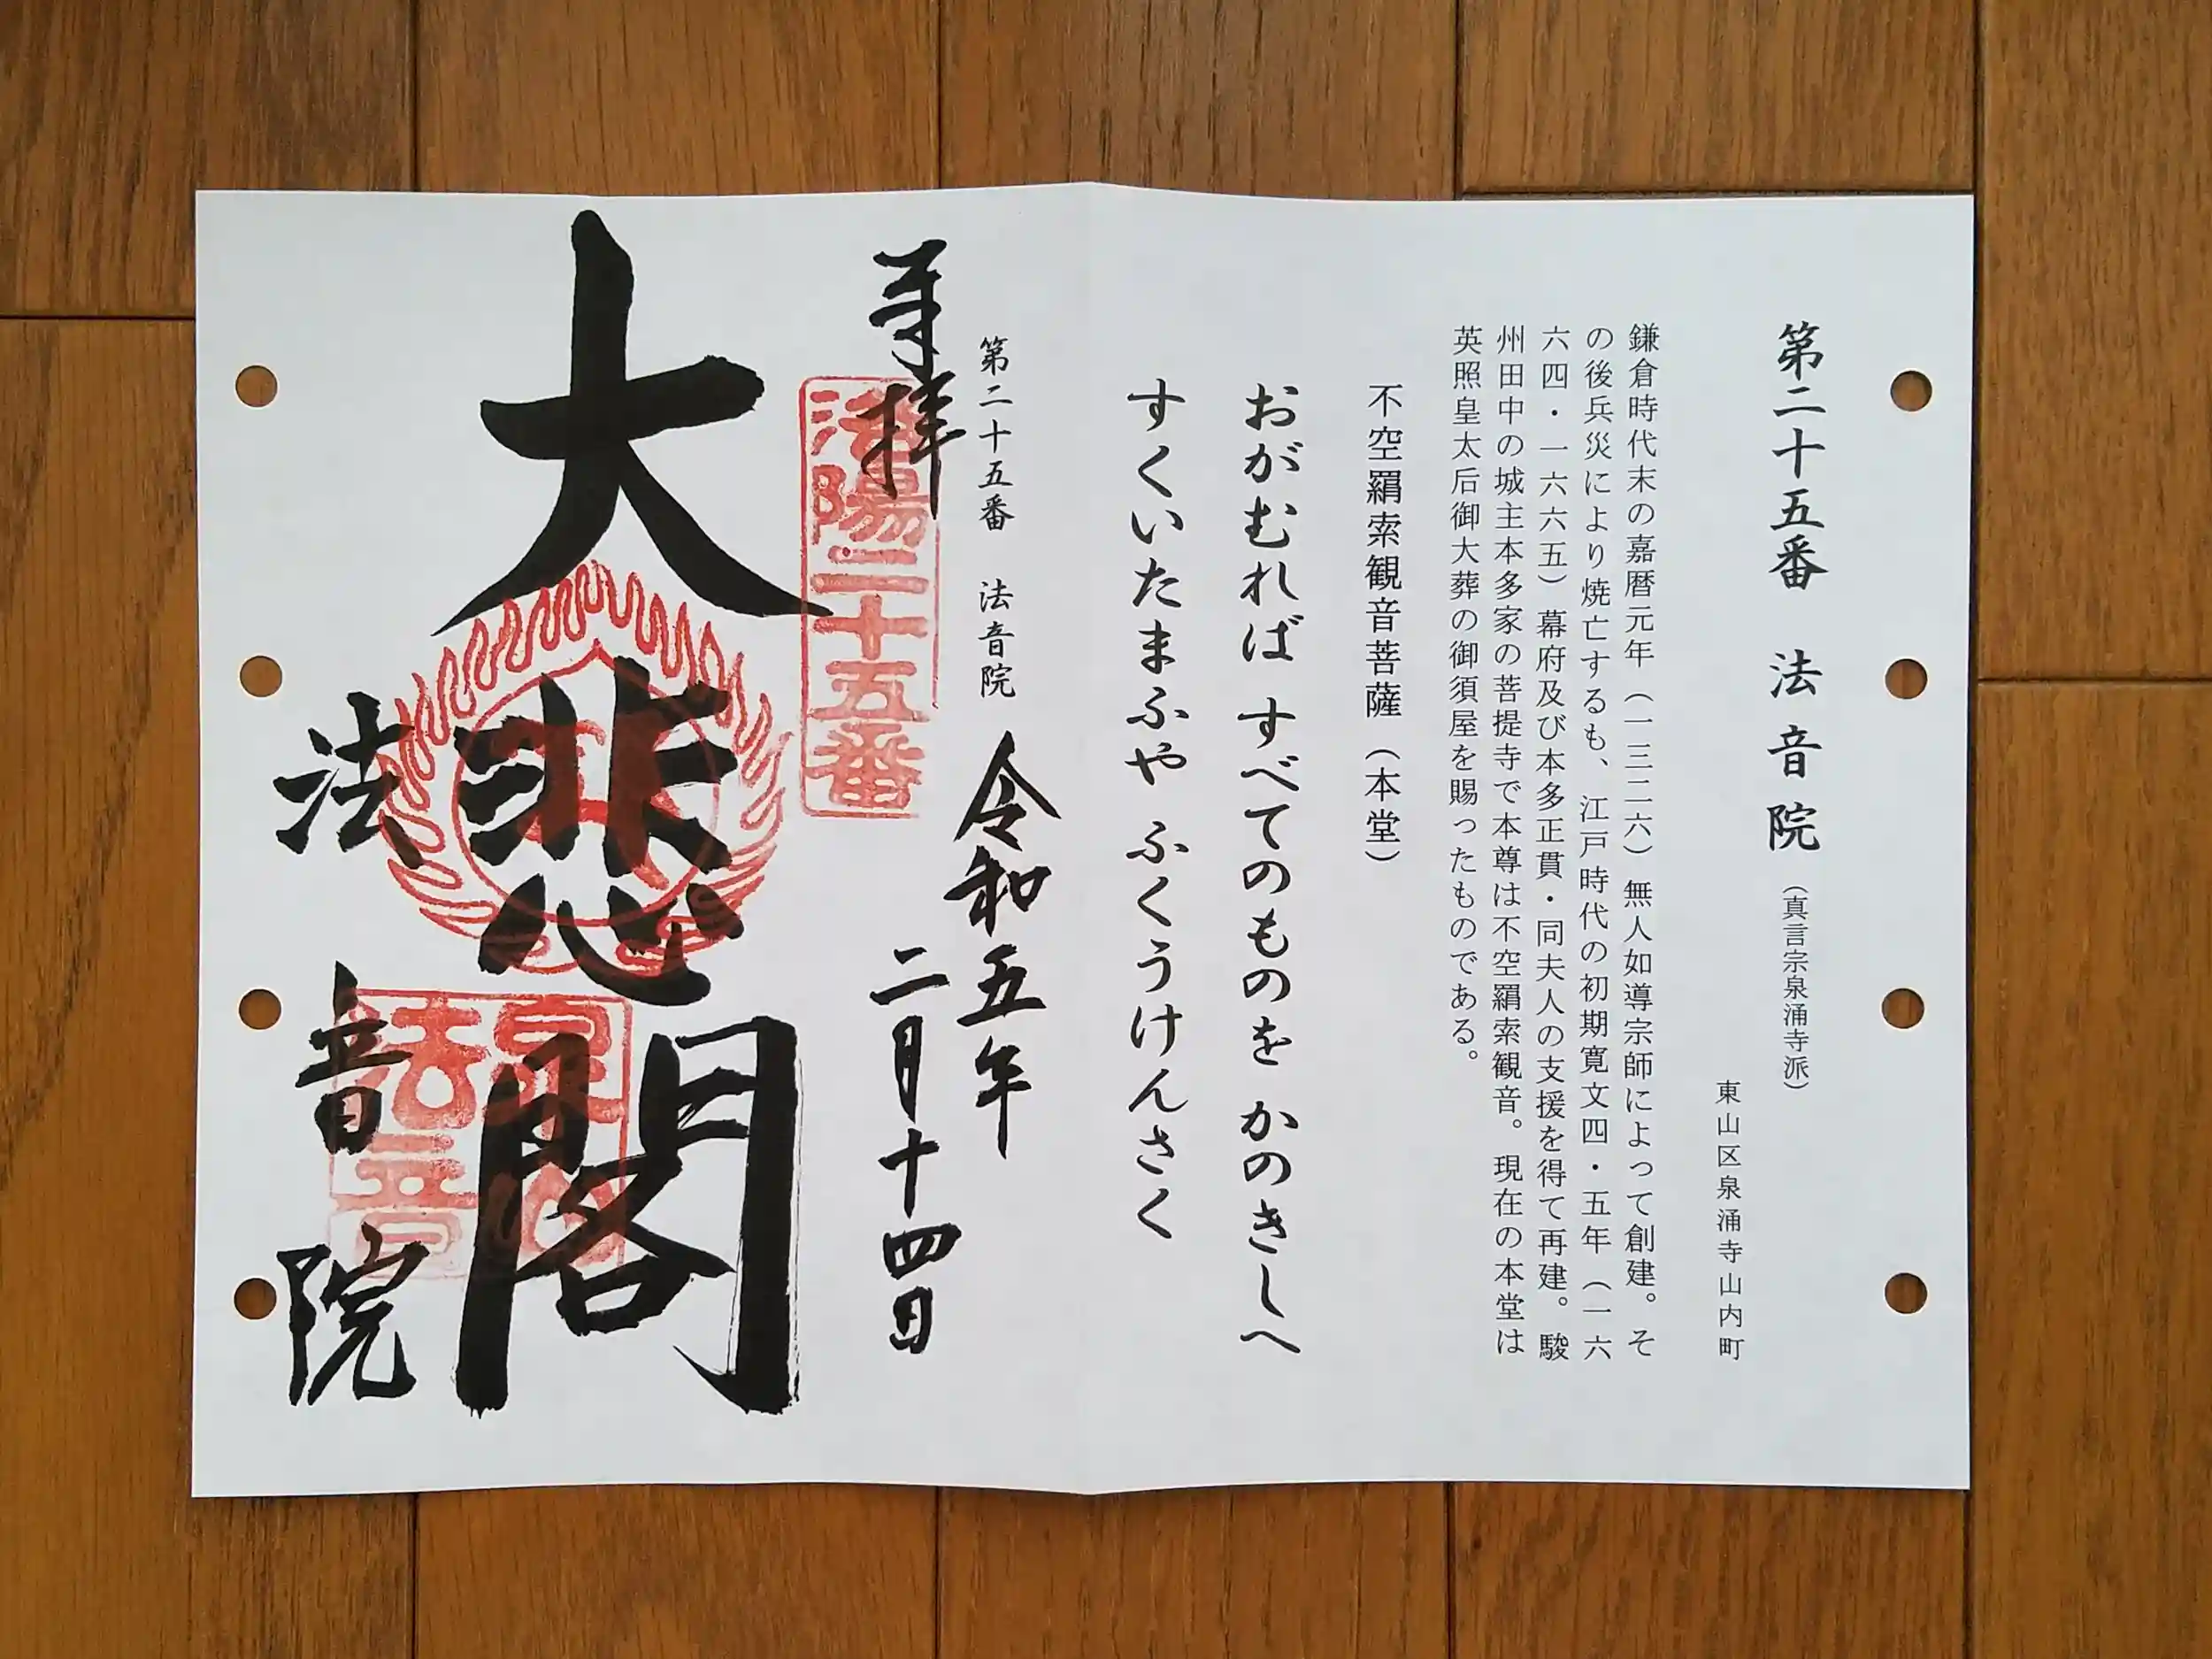 第二十五番 法音院（真言宗泉涌寺派）
東山区泉涌寺山内町
鎌倉時代末の嘉暦元年（一三二六）無人如導宗師によって創建。そ
の後兵災により焼亡するも、江戸時代の初期寛文四・五年（一六
六四・一六六五）幕府及び本多正貫・同夫人の支援を得て再建。駿
州田中の城主本多家の菩提寺で本尊は不空羂索観音。現在の本堂は
英照皇太后御大葬の御須屋を賜ったものである。
不空羂索観音菩薩（本堂）
おがむれば すべてのものを かのきしへ
すくいたまふや ふくうけんさく
第二十五番 法音院
令和五年
二月十四日
奉拝
洛陽二十五番
大悲閣
法音院